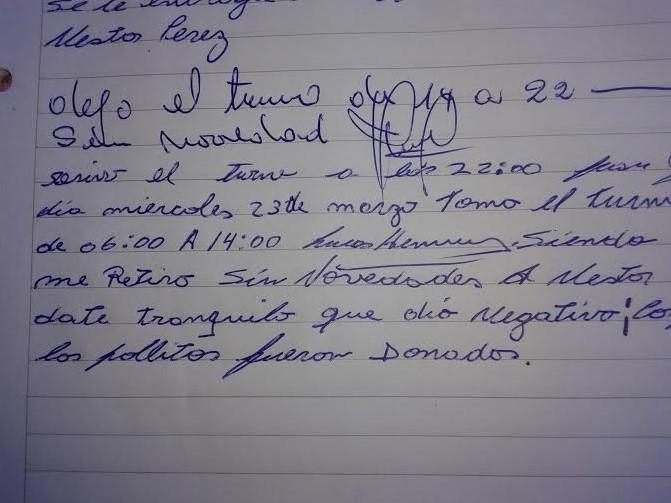 se le
Nestor Perez
dejo el turno de 14 a 22
Sin Novedad
el turno a las 22:00
dia miercoles 23 de marzo Tomo el turn
de 06:00 A 14:00 Siendo
me Retiro Sin Novedades A Nestor
date tranquilo que dio Negativo ¡
los pollitos fueron Donados.